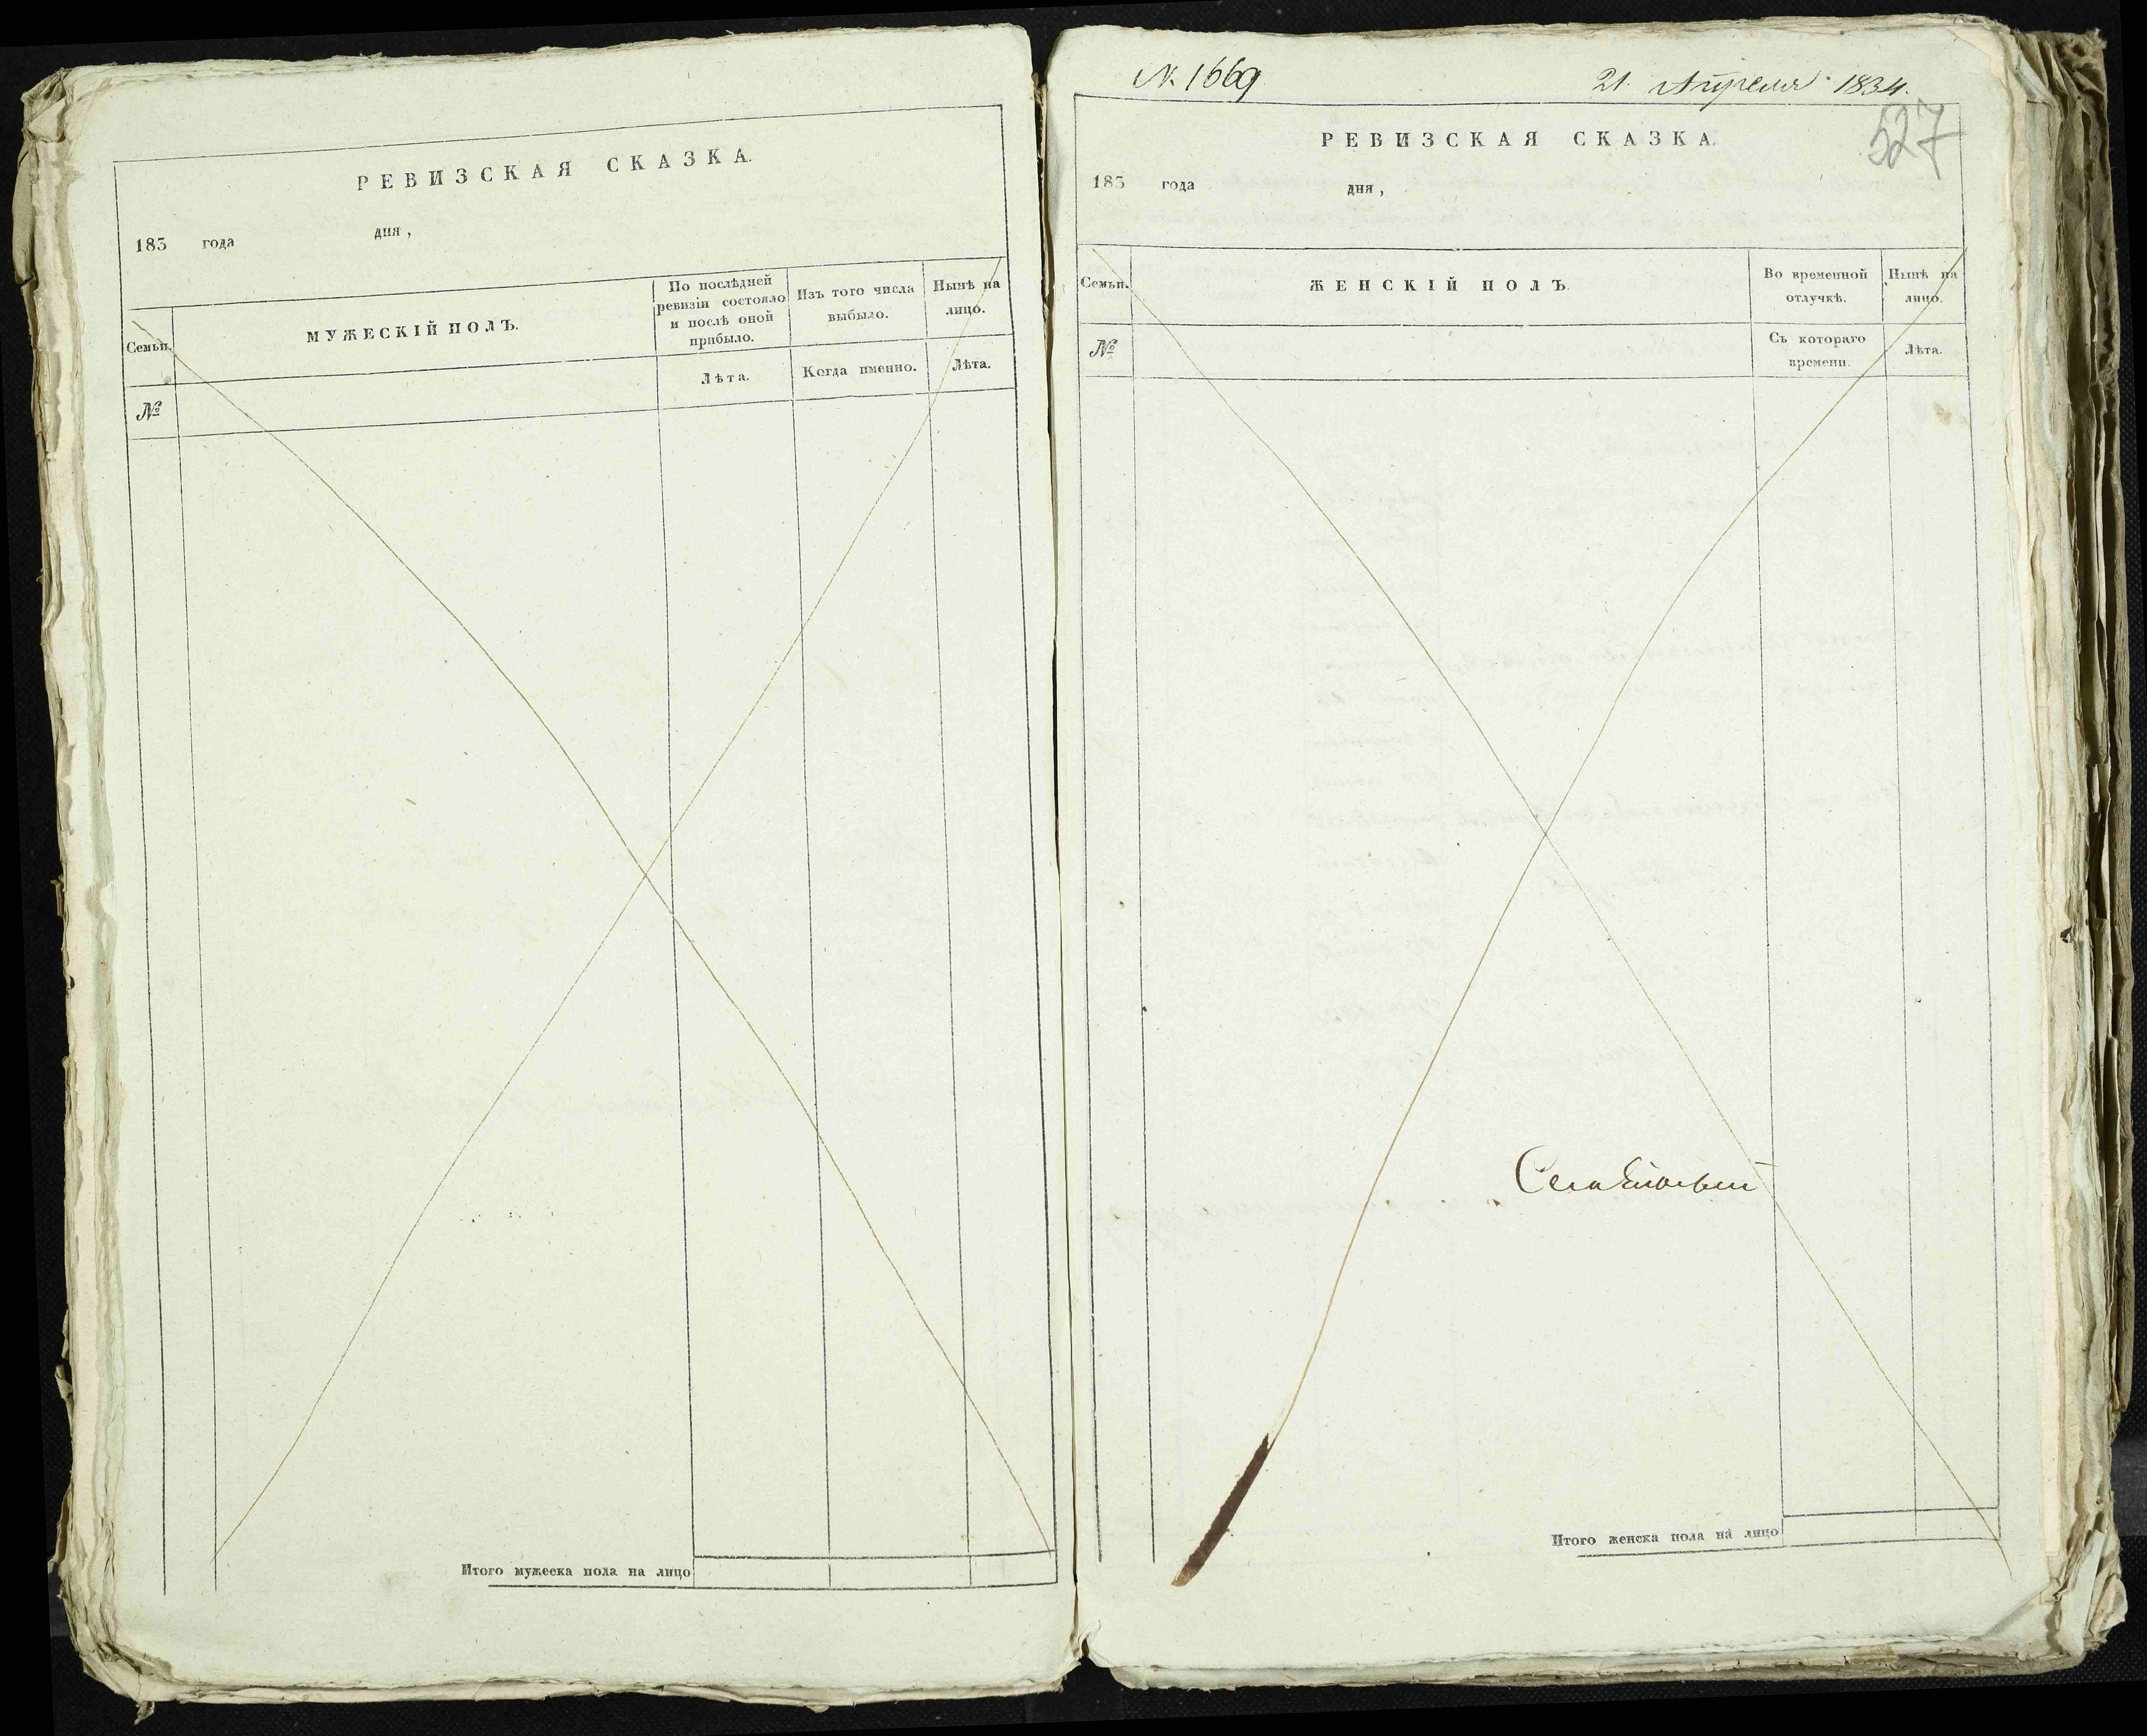 РЕВИЗСКАЯ СКАЗКА.
183 года дня,
Семьи.
МУЖЕСКІЙ ПОЛЪ.
По послѣдней
ревизіи состояло
и послѣ оной
прибыло.
Изъ того числа
выбыло.
Нынѣ на
лицо.
№
Лѣта.
Когда именно.
Лѣта.
Итого мужеска пола на лицо
№ 1669
21 Апреля 1834.
527
РЕВИЗСКАЯ СКАЗКА.
183 года дня,
Семьи.
ЖЕНСКІЙ ПОЛЪ.
Во временной
отлучкѣ.
Нынѣ на
лицо.
№
Съ котораго
времени.
Лѣта.
Итого женска пола на лицо